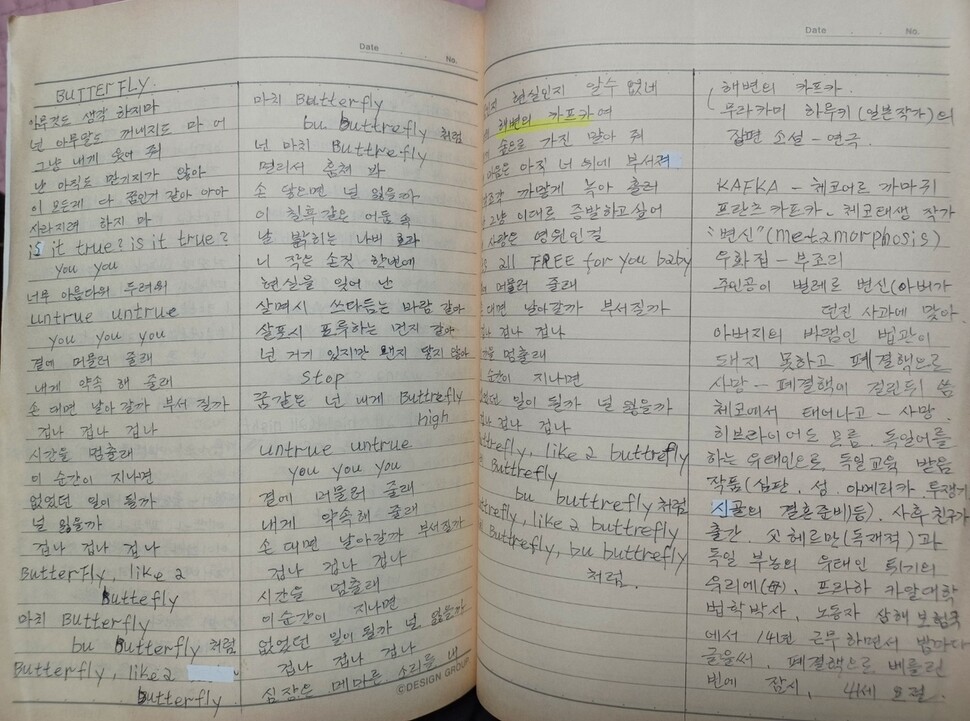 Date . . No.
BUTTERFLY.
아무것도 생각 하지마
넌 아무말도 꺼내지도 마 어
그냥 내게 웃어 줘
난 아직도 믿기지가 않아
이 모든게 다 꿈인거 같아 아아
사라지려 하지 마
is it true? is it true?
you you
너무 아름다워 두려워
untrue untrue
you you you
곁에 머물러 줄래
내게 약속 해 줄래
손 대면 날아갈까 부서 질까
겁나 겁나 겁나
시간을 멈출래
이 순간이 지나면
없었던 일이 될까
널 잃을까
겁나 겁나 겁나
Butterfly, like a
Buttefly
마치 Butterfly
bu Butterfly 처럼
Butterfly, like a
butterfly
마치 Butterfly
bu buttrefly 처럼
넌 마치 Buttrefly
멀리서 훔쳐 봐
손 닿으면 널 잃을까
이 칠흑같은 어둠 속
날 밝히는 나비 효과
니 작은 손짓 한번에
현실을 잊어 난
살며시 쓰다듬는 바람 같아
살포시 표류하는 먼지 같아
넌 거기 있지만 왠지 닿지 않아
stop
꿈같은 넌 내게 Buttrefly
high
untrue untrue
you you you
곁에 머물러 줄래
내게 약속해 줄래
손 대면 날아갈까 부서질까
겁나 겁나 겁나
시간을 멈출래
이 순간이 지나면
없었던 일이 될까 널 잃을까
겁나 겁나 겁나
심장은 메마른 소리를 내
©DESIGN GROUP
Date . . No.
현실인지 알수 없네
해변의 카프카여
숲으로 가진 말아 줘
마음은 아직 너 위에 부서져
조각 까맣게 녹아 흘러
그냥 이대로 증발하고싶어
사랑은 영원인걸
all FREE for you baby
머물러 줄래
대면 날아갈까 부서질까
겁나 겁나
멈출래
순간이 지나면
없었던 일이 될까 널 잃을까
겁나 겁나
buttrefly, like a buttrefly
Buttrefly
bu buttrefly 처럼
buttrefly, like a buttrefly
Buttrefly, bu buttrefly
처럼.
( 해변의 카프카.
무라카미 하루키 (일본작가)의
장편 소설 - 연극.
KAFKA - 체코어로 까마귀
프란츠 카프카. 체코태생 작가
"변신"(metamorphosis)
우화집 - 부조리
주인공이 벌레로 변신(아버가
던진 사과에 맞아.
아버지의 바램인 법관이
돼지 못하고 폐결핵으로
사망 - 폐결핵이 걸린뒤 씀
체코에서 태어나고 - 사망.
히브라이어도 모름. 독일어를
하는 유태인으로, 독일교육 받음
작품(심판, 성. 아메리카.
시골의 결혼준비)등). 사후 친구가
출간. 父 헤르만(독재적)과
독일 부농의 유태인
유리에(母), 프라하 카알대학
법학박사, 노동자 상해 보험국
에서 14년 근무하면서 밤마다
글을써. 폐결핵으로 베를린
빈에 잠시, 41세 요절.